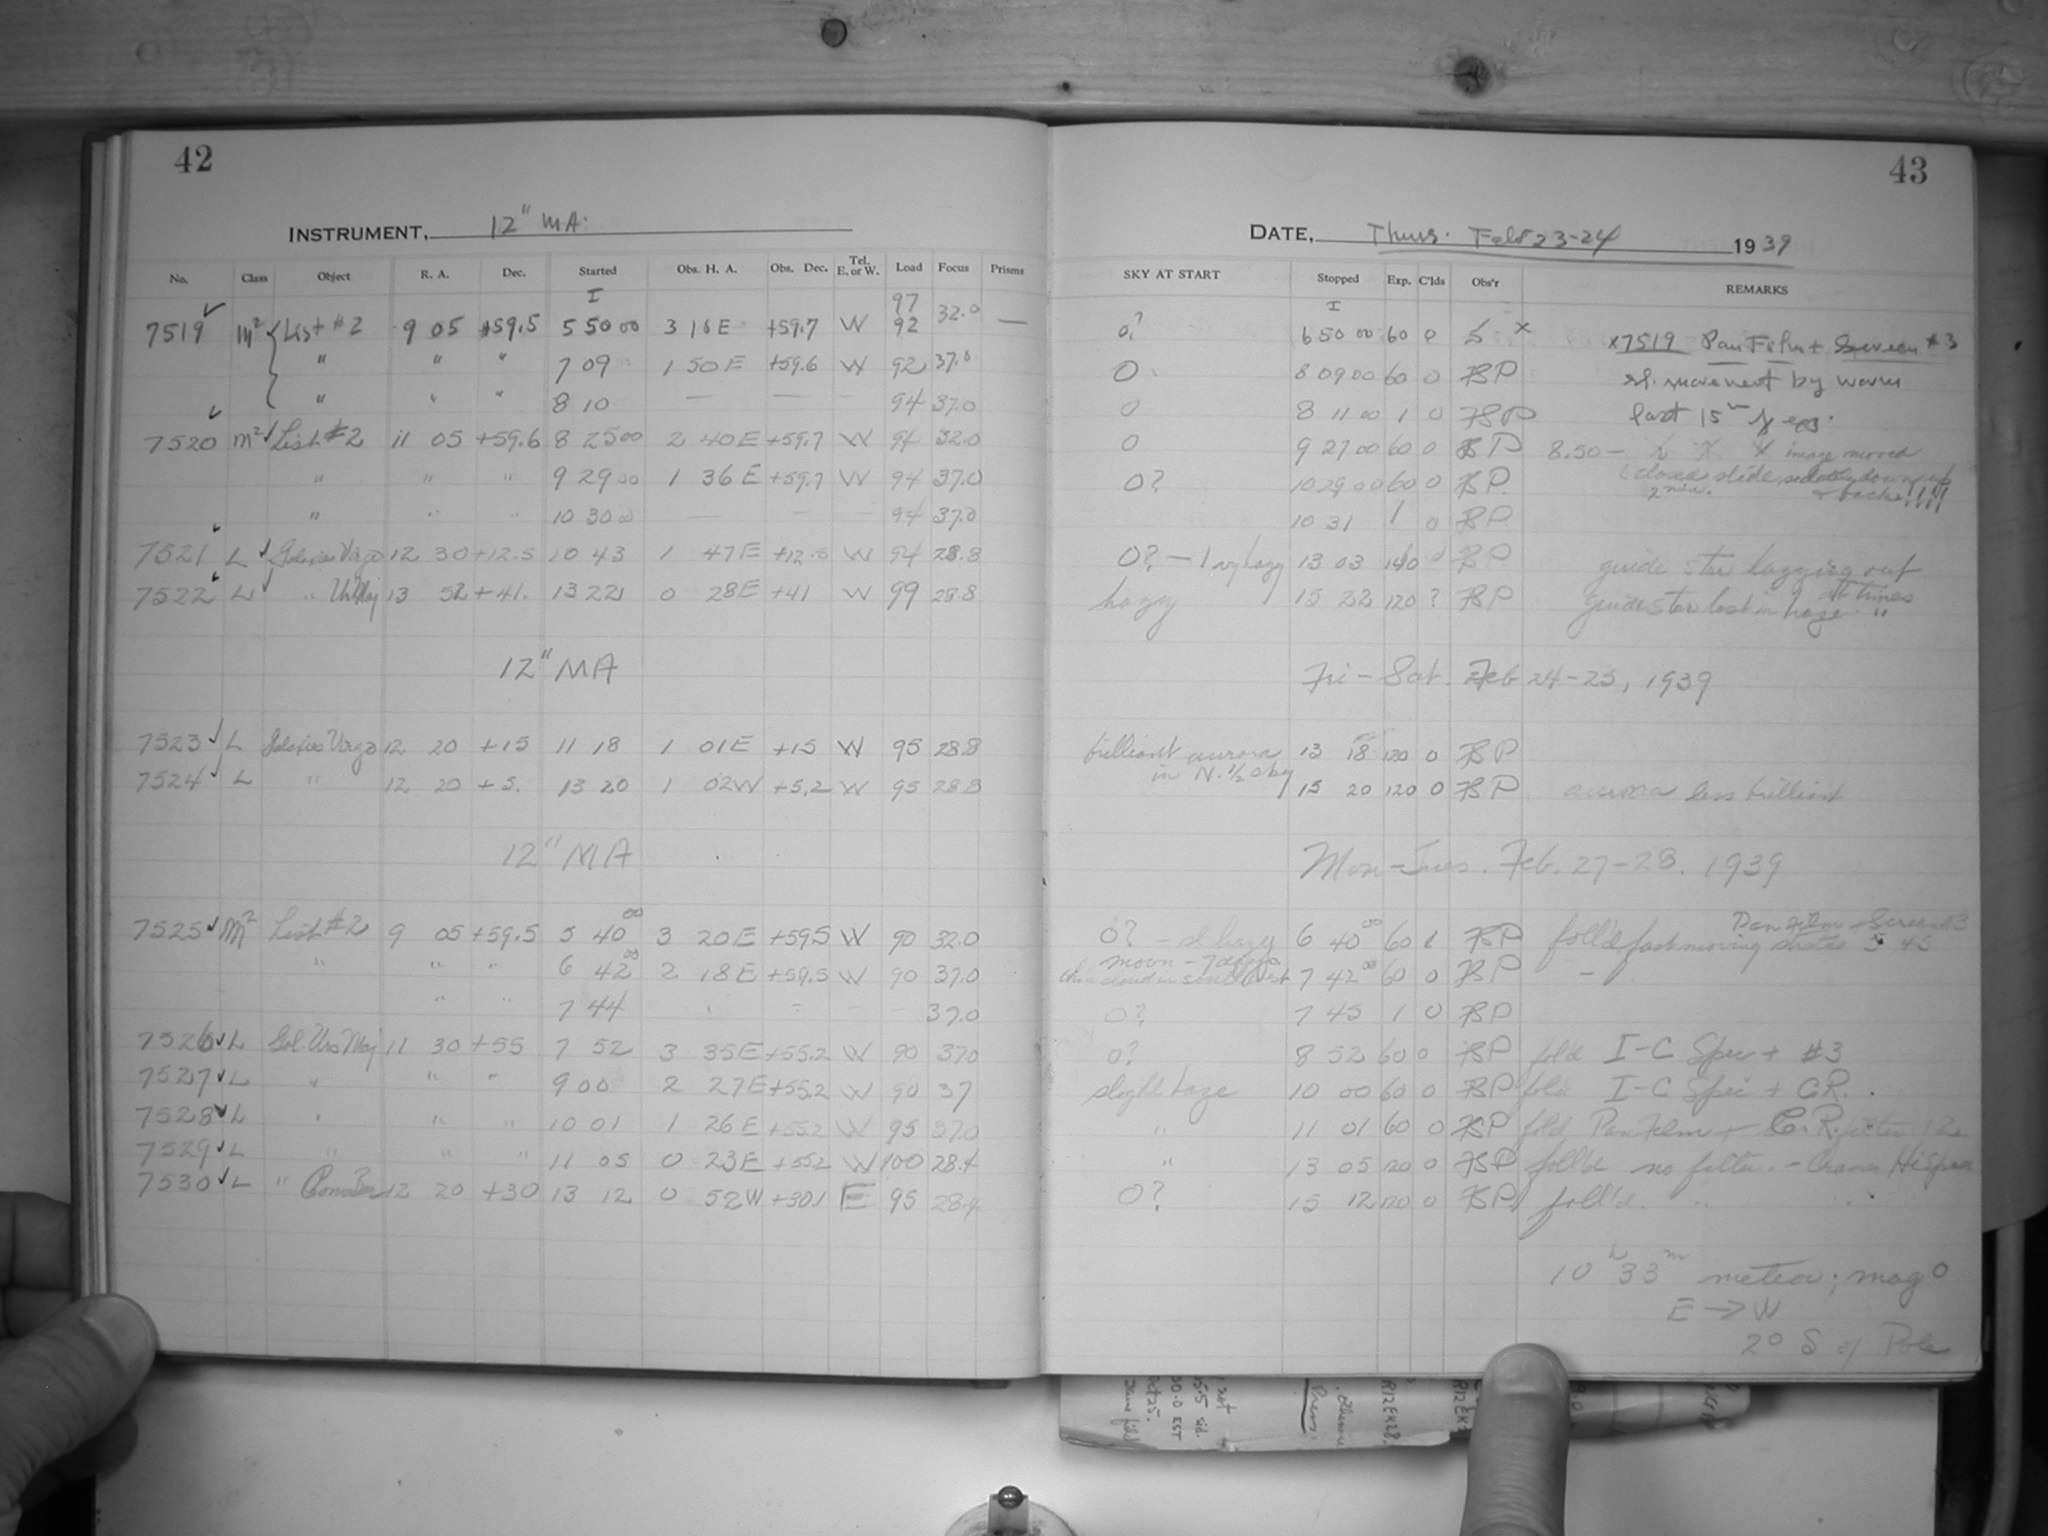 42
INSTRUMENT, 12" MA.
No. Class Object R. A. Dec. Started Obs. H. A. Obs. Dec. Tel. E. or W. Load Focus Prisms
I 97
7519 M² List #2 9 05 +59.5 5 50 00 3 18 E +59.7 W 92 32.0 —
" " " 7 09 1 50 E +59.6 W 92 37.0
" " " 8 10 — — 94 37.0
7520 M² List #2 11 05 +59.6 8 25 00 2 40 E +59.7 W 94 32.0
" " " 9 29 00 1 36 E +59.7 W 94 37.0
" " " 10 30 00 — — — 94 37.0
7521 L Galaxies Virgo 12 30 +12.5 10 43 1 47 E +12.5 W 94 28.8
7522 L " UrMaj 13 52 +41. 13 22 0 28 E +41 W 99 28.8
12" MA
7523 L Galaxies Virgo 12 20 +15 11 18 1 01 E +15 W 95 28.8
7524 L " 12 20 +5. 13 20 1 02 W +5.2 W 95 28.8
12" MA
7525 M² List #2 9 05 +59.5 5 40 00 3 20 E +59.5 W 90 32.0
" " " 6 42 00 2 18 E +59.5 W 90 37.0
" " 7 44 37.0
7526 L Gal. Urs Maj 11 30 +55 7 52 3 35 E +55.2 W 90 37.0
7527 L " " " 9 00 2 27 E +55.2 W 90 37
7528 L " " " 10 01 1 26 E +55.2 W 95 37.0
7529 L " " " 11 05 0 23 E +55.2 W 100 28.4
7530 L " Coma Ber 12 20 +30 13 12 0 52 W +30.1 E 95 28.4
43
DATE, Thurs. Feb 23-24 1939
SKY AT START Stopped Exp. C'lds Obs'r REMARKS
I
0? 6 50 00 60 0 x x7519 Pan Film + Screen #3
0 8 09 00 60 0 FSP sl. movement by worm
0 8 11 00 1 0 FSP last 15m of exp.
0 9 27 00 60 0 FSP 8.50 — image moved
0? 10 29 00 60 0 FSP (closed slide suddenly down up
2 min. + back!!!!
10 31 1 0 FSP
0? — 1 13 03 140 0 FSP guide star hazying out
at times
hazy 15 22 120 ? FSP guide star lost in haze "
Fri - Sat. Feb 24-25, 1939
brilliant aurora 13 18 120 0 FSP
in N. 1/2 sky
15 20 120 0 FSP aurora less brilliant
Mon-Tues. Feb. 27-28. 1939
Pan Film + Screen #3
0? - sl hazy 6 40 00 60 1 FSP foll'd fast moving 5 45
moon - 7 days
thin cloud in southwest 7 42 00 60 0 FSP —
0? 7 45 1 0 FSP
0? 8 52 60 0 FSP fol'd I-C Spec + #3
slight haze 10 00 60 0 FSP fol'd I-C Spec + CR.
" 11 01 60 0 FSP fol'd Pan Film +
" 13 05 120 0 FSP foll'd no filter. - Cramer HiSpeed
0? 15 12 120 0 FSP foll'd. " "
10h 33m meteor; mag 0
E → W
2° S of Pole